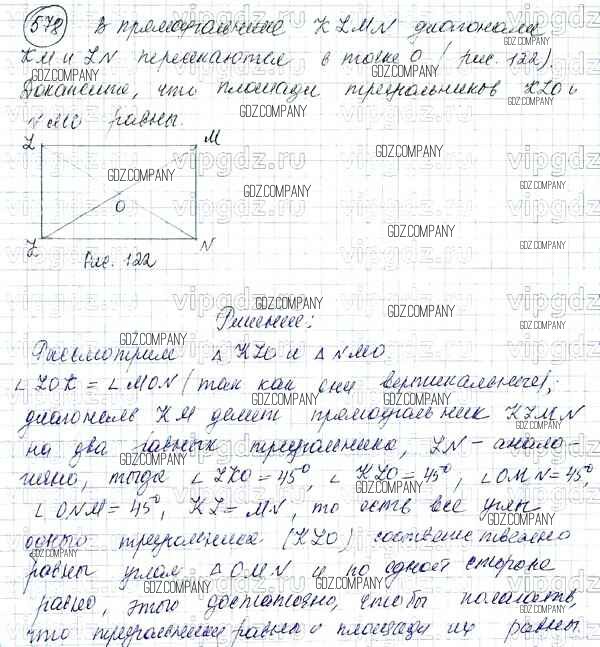 578 В прямоугольнике KLMN диагонали
KM и LN пересекаются в точке O (рис. 122).
Докажите, что площади треугольников KLO и
NMO равны.
L M
O
N
Рис. 122
Решение:
Рассмотрим △ KLO и △ NMO.
∠ LOK = ∠ MON (так как они вертикальные);
диагональ KM делит прямоугольник KLMN
на два равных треугольника, LN - анало-
гично, тогда ∠ LKO = 45°, ∠ KLO = 45°, ∠ OMN = 45°,
∠ ONM = 45°, KL = MN, то есть все углы
одного треугольника (KLO) соответственно
равны углам △ OMN и по одной стороне
равно, этого достаточно, чтобы полагать,
что треугольники равны и площади их равны.
GDZ.COMPANY
vipgdz.ru